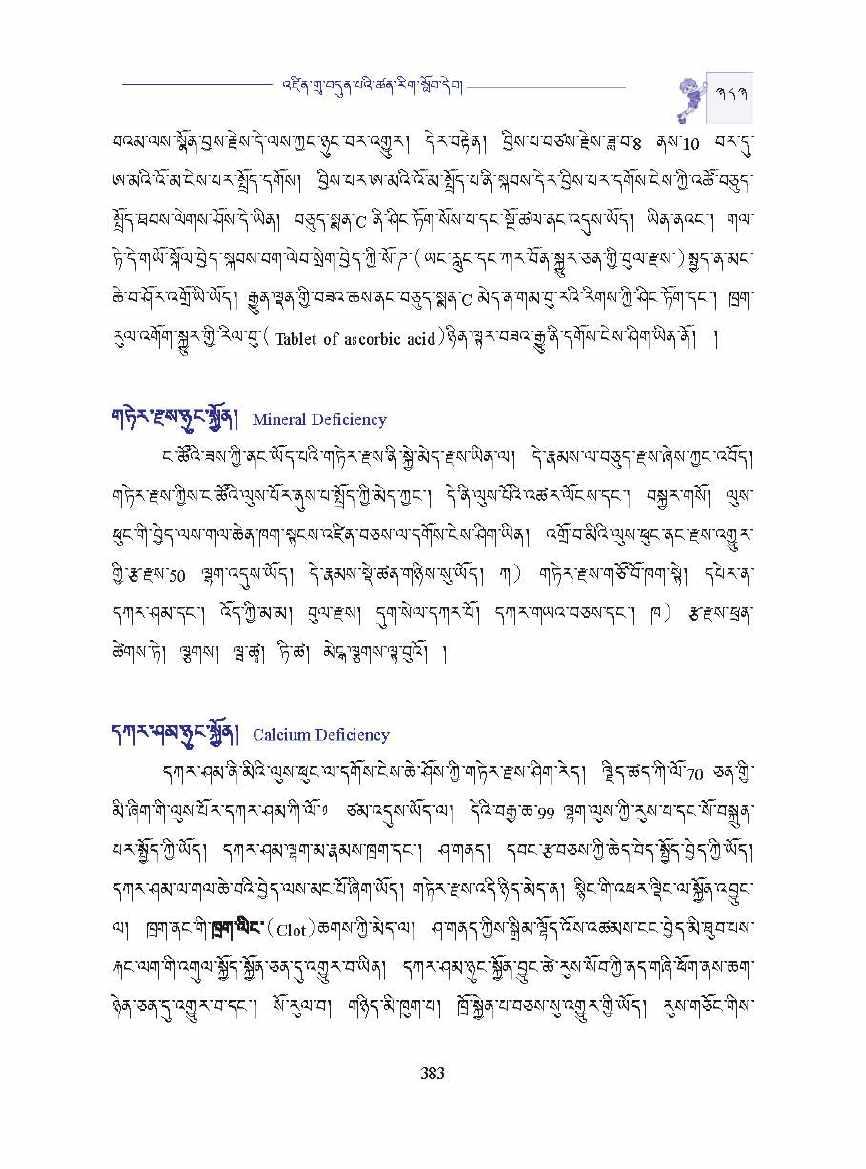 འཛིན་གྲྭ་བདུན་པའི་ཚན་རིག་སློབ་དེབ།
༣༨༣
བའམ་ལས་སྣོན་བྱས་རྗེས་དེ་ལས་ཀྱང་ཉུང་བར་འགྱུར། དེར་བརྟེན། བྱིས་པ་བཙས་རྗེས་ཟླ་བ་8 ནས་10 བར་དུ་
ཨ་མའི་འོ་མ་ངེས་པར་སྤྲོད་དགོས། བྱིས་པར་ཨ་མའི་འོ་མ་སྤྲོད་པ་ནི་སྐབས་དེར་བྱིས་པར་དགོས་ངེས་ཀྱི་འཚོ་བཅུད་
སྤྲོད་ཐབས་ལེགས་ཤོས་དེ་ཡིན། བཅུད་སྨན་C ནི་ཤིང་ཏོག་སོས་པ་དང་སྔོ་ཚལ་ནང་འདུས་ཡོད། ཡིན་ནའང་། གལ་
ཏེ་དེ་གཡོ་སྐོལ་བྱེད་སྐབས་བག་ལེབ་སྲེག་བྱེད་ཀྱི་སོ་ཌ་(ཡང་རླུང་དང་ཀར་བོན་སྐྱུར་ཅན་གྱི་བུལ་རྫས་)སྤྱད་ན་མང་
ཆེ་བ་ཤོར་འགྲོ་ཡི་ཡོད། རྒྱུན་ལྡན་གྱི་བཟའ་ཆས་ནང་བཅུད་སྨན་C མེད་ན་གམ་བུ་རའི་རིགས་ཀྱི་ཤིང་ཏོག་དང་། ཁྲག་
རུལ་འགོག་སྐྱུར་གྱི་རིལ་བུ་( Tablet of ascorbic acid)ཉིན་ལྟར་བཟའ་རྒྱུ་ནི་དགོས་ངེས་ཤིག་ཡིན་ནོ། །
གཏེར་རྫས་ཉུང་སྐྱོན། Mineral Deficiency
ང་ཚོའི་ཟས་ཀྱི་ནང་ཡོད་པའི་གཏེར་རྫས་ནི་སྐྱེ་མེད་རྫས་ཡིན་ལ། དེ་རྣམས་ལ་བཅུད་རྫས་ཞེས་ཀྱང་འབོད།
གཏེར་རྫས་ཀྱིས་ང་ཚོའི་ལུས་པོར་ནུས་པ་སྤྲོད་ཀྱི་མེད་ཀྱང་། དེ་ནི་ལུས་པོའི་འཚར་ལོངས་དང་། བསྐྱར་གསོ། ལུས་
ཕུང་གི་བྱེད་ལས་གལ་ཆེན་ཁག་སྟངས་འཛིན་བཅས་ལ་དགོས་ངེས་ཤིག་ཡིན། འགྲོ་བ་མིའི་ལུས་ཕུང་ནང་རྫས་འགྱུར་
གྱི་རྩ་རྫས་50 ལྷག་འདུས་ཡོད། དེ་རྣམས་སྡེ་ཚན་གཉིས་སུ་ཡོད། ཀ) གཏེར་རྫས་གཙོ་བོ་ཁག་སྟེ། དཔེར་ན་
དཀར་ཤམ་དང་། འོད་ཀྱི་མ་མ། བུལ་རྫས། དུག་སེལ་དཀར་པོ། དཀར་གཡའ་བཅས་དང་། ཁ) རྩ་རྫས་ཕྲན་
ཚེགས་ཏེ། ལྕགས། ཝ་ཚྭ། ཏི་ཚ། མེང་ལྕགས་ལྟ་བུའོ། །
དཀར་ཤམ་ཉུང་སྐྱོན། Calcium Deficiency
དཀར་ཤམ་ནི་མིའི་ལུས་ཕུང་ལ་དགོས་ངེས་ཆེ་ཤོས་ཀྱི་གཏེར་རྫས་ཤིག་རེད། ལྗིད་ཚད་ཀི་ལོ་70 ཅན་གྱི་
མི་ཞིག་གི་ལུས་པོར་དཀར་ཤམ་ཀི་ལོ་༡ ཙམ་འདུས་ཡོད་ལ། དེའི་བརྒྱ་ཆ་99 ལྷག་ལུས་ཀྱི་རུས་པ་དང་སོ་བསྐྲུན་
པར་སྤྱོད་ཀྱི་ཡོད། དཀར་ཤམ་ལྷག་མ་རྣམས་ཁྲག་དང་། ཤ་གནད། དབང་རྩ་བཅས་ཀྱི་ཆེད་བེད་སྤྱོད་བྱེད་ཀྱི་ཡོད།
དཀར་ཤམ་ལ་གལ་ཆེ་བའི་བྱེད་ལས་མང་པོ་ཞིག་ཡོད། གཏེར་རྫས་འདི་ཉིད་མེད་ན། སྙིང་གི་འཕར་ལྡིང་ལ་སྐྱོན་འབྱུང་
ལ། ཁྲག་ནང་གི་ཁྲག་ལིང་(Clot)ཆགས་ཀྱི་མེད་ལ། ཤ་གནད་ཀྱིས་སྒྲིམ་ལྷོད་འོས་འཚམས་ངང་བྱེད་མི་ཐུབ་པས་
རྐང་ལག་གི་འགུལ་སྐྱོད་སྐྱོན་ཅན་དུ་འགྱུར་བ་ཡིན། དཀར་ཤམ་ཉུང་སྐྱོན་བྱུང་ཚེ་རུས་སོབ་ཀྱི་ནད་གཞི་ཕོག་ནས་ཆག་
ཉེན་ཅན་དུ་འགྱུར་བ་དང་། སོ་རུལ་བ། གཉིད་མི་ཁུག་པ། ཁྲོ་སྐྱེན་པ་བཅས་སུ་འགྱུར་གྱི་ཡོད། རུས་གཅོང་གིས་
383